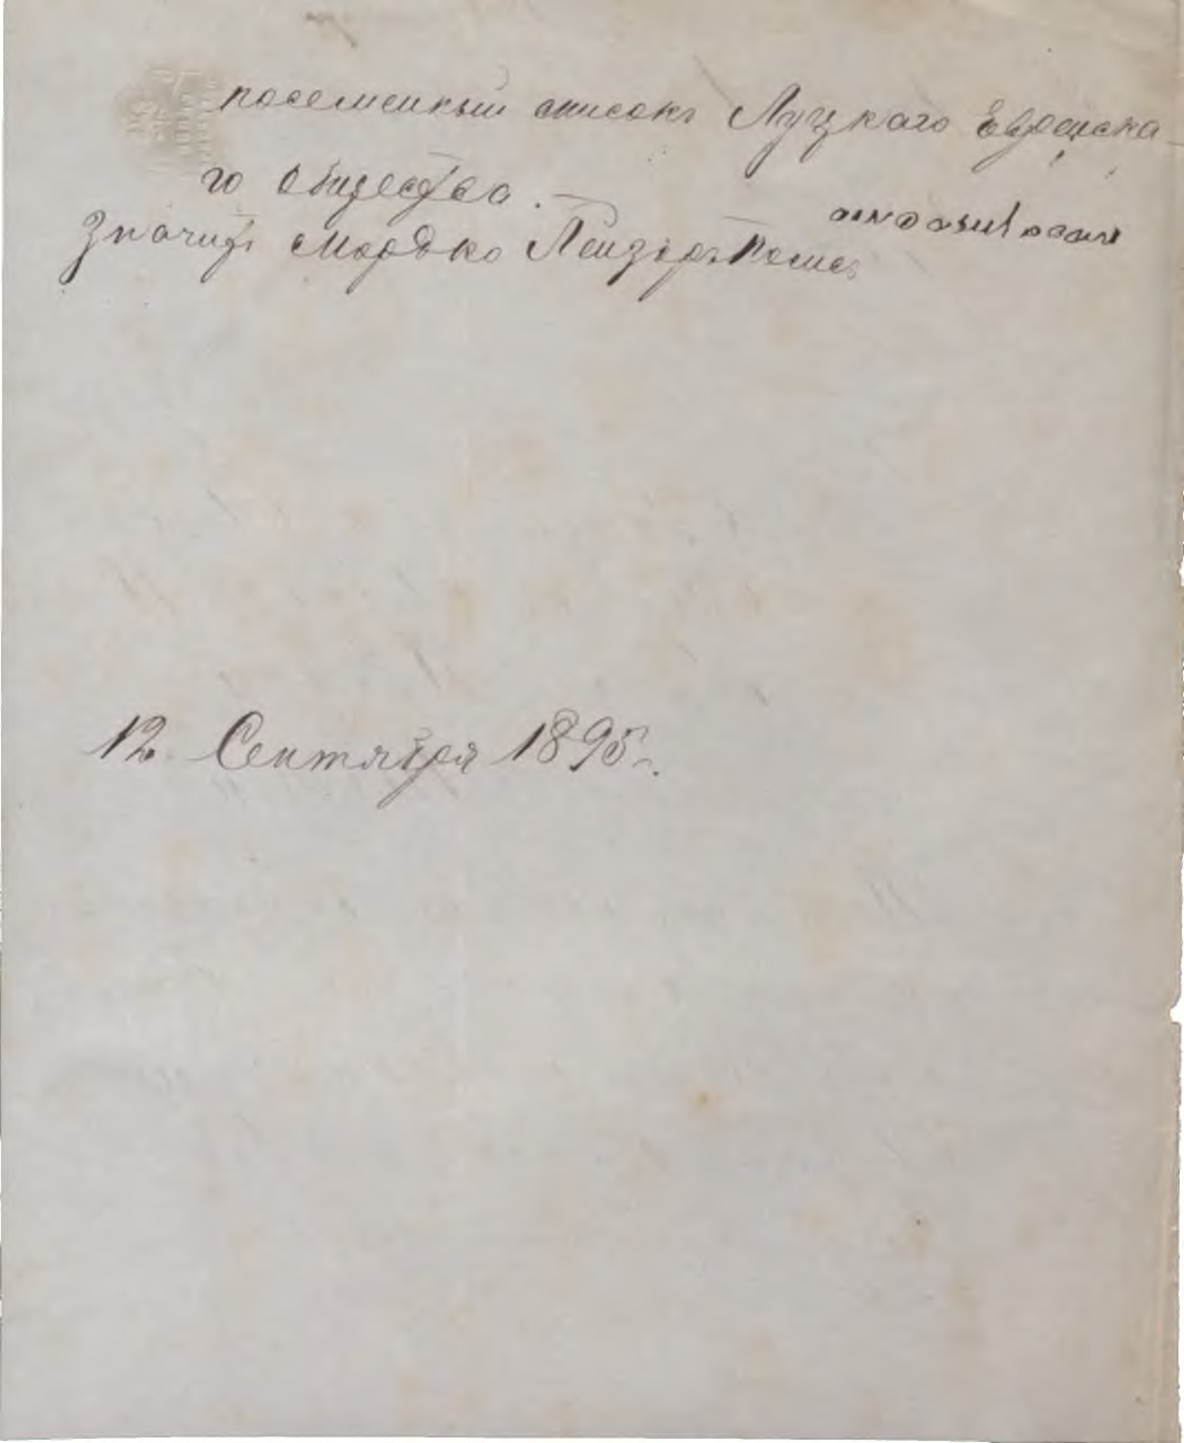 посемейный списокъ Луцкаго Еврейска-
го общества.
Значитъ Мордко Лейзеръ
12 Сентября 1895 г.